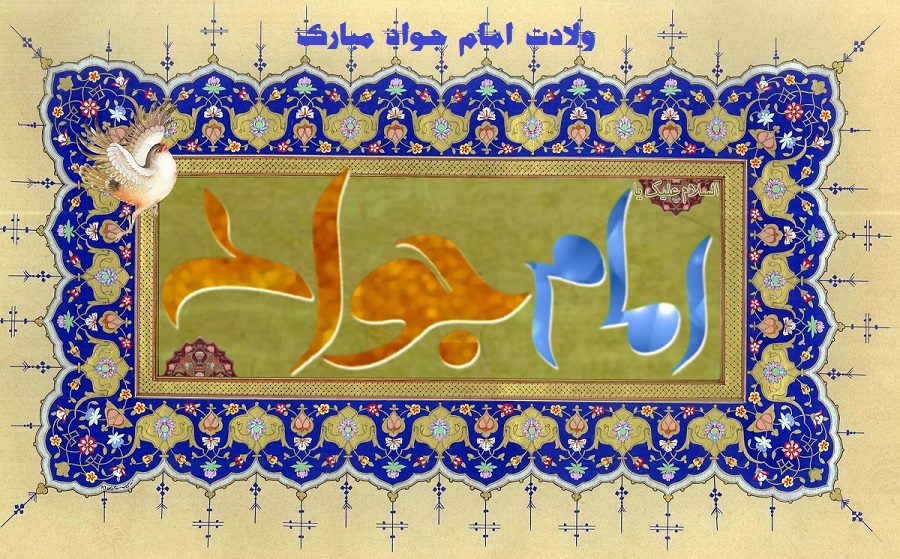 ولادت امام جواد مبارک
السلام علیک یا
امام جواد